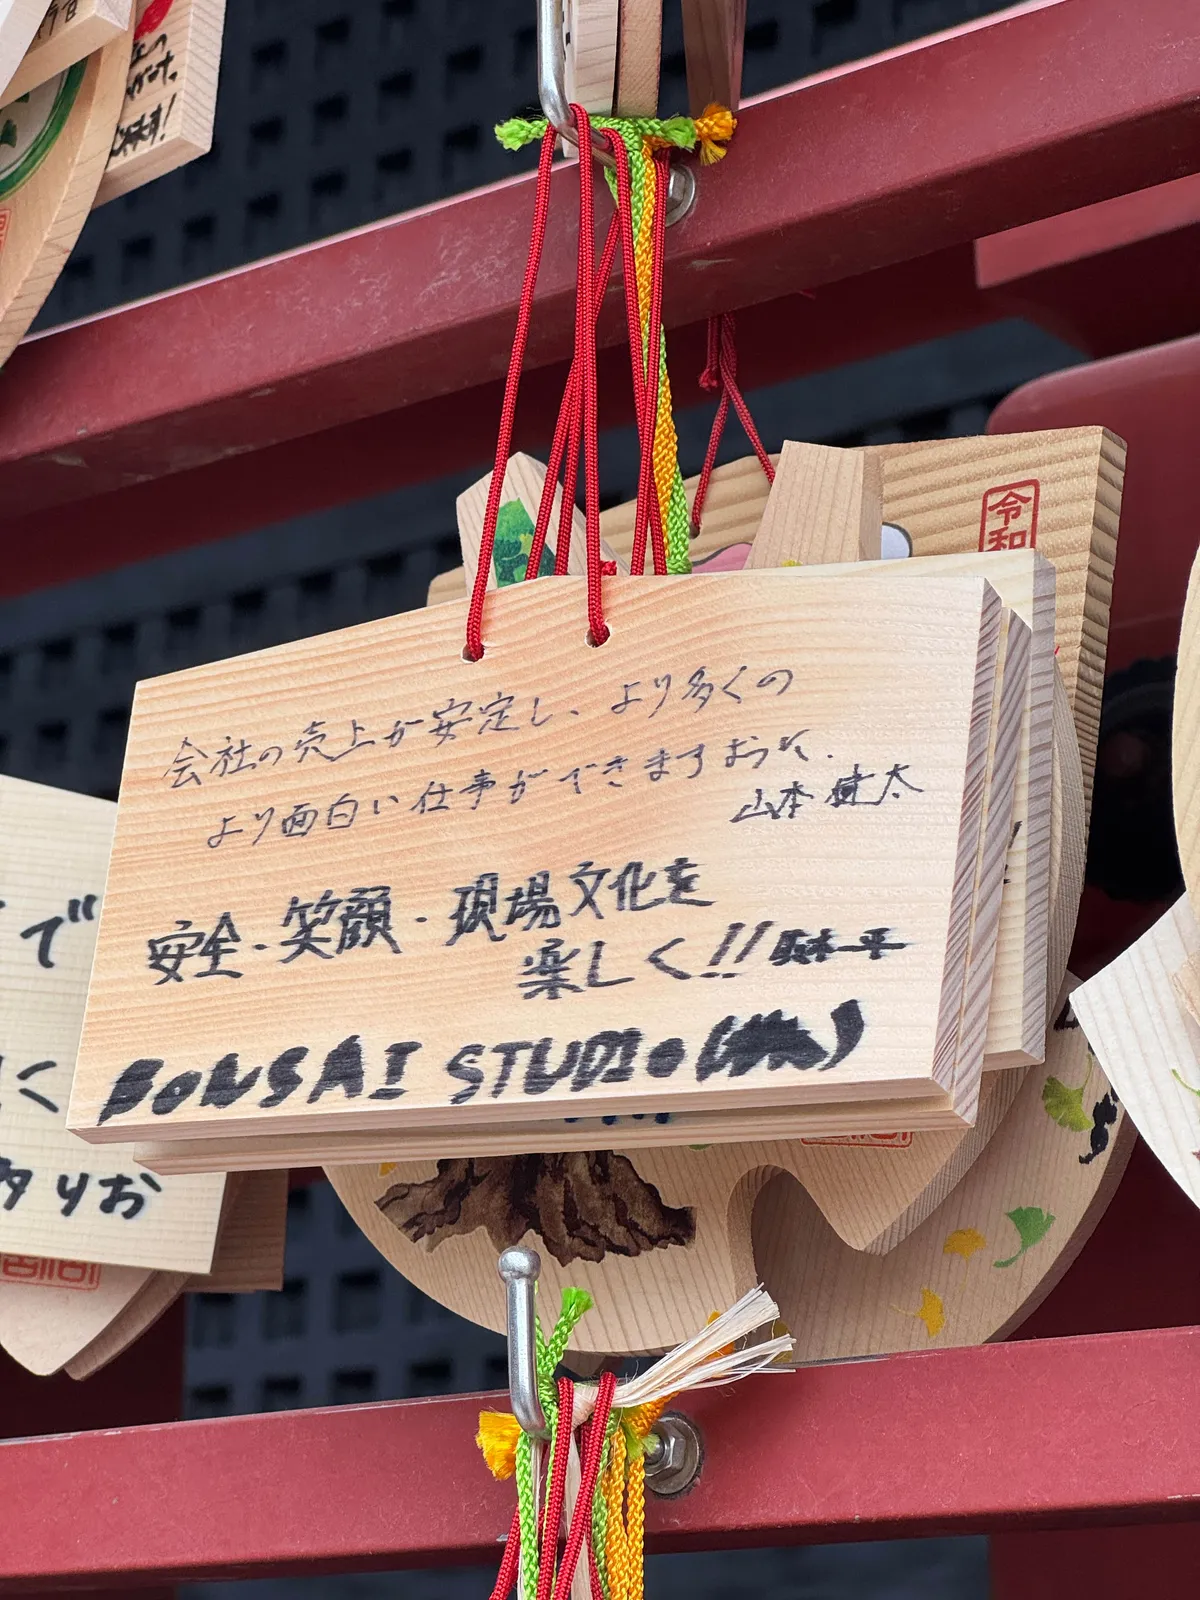 会社の売上が安定し、より多くの
より面白い仕事ができますように.
山本健太
安全・笑顔・現場文化を
楽しく!!
BONSAI STUDIO(株)
令和
で
く
りお